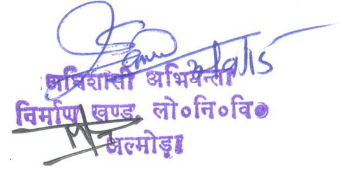 अधिशासी अभियन्ता
निर्माण खण्ड, लो०नि०वि०
अल्मोड़ा